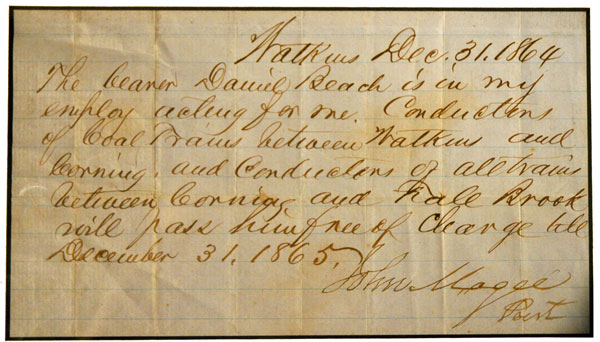 Watkins Dec. 31. 1864
The bearer Daniel Beach is in my
employ acting for me. Conductors
of Coal Trains between Watkins and
Corning. and Conductors of all trains
between Corning and Fall Brook
will pass him free of Charge till
December 31. 1865.
John Magee
Prest